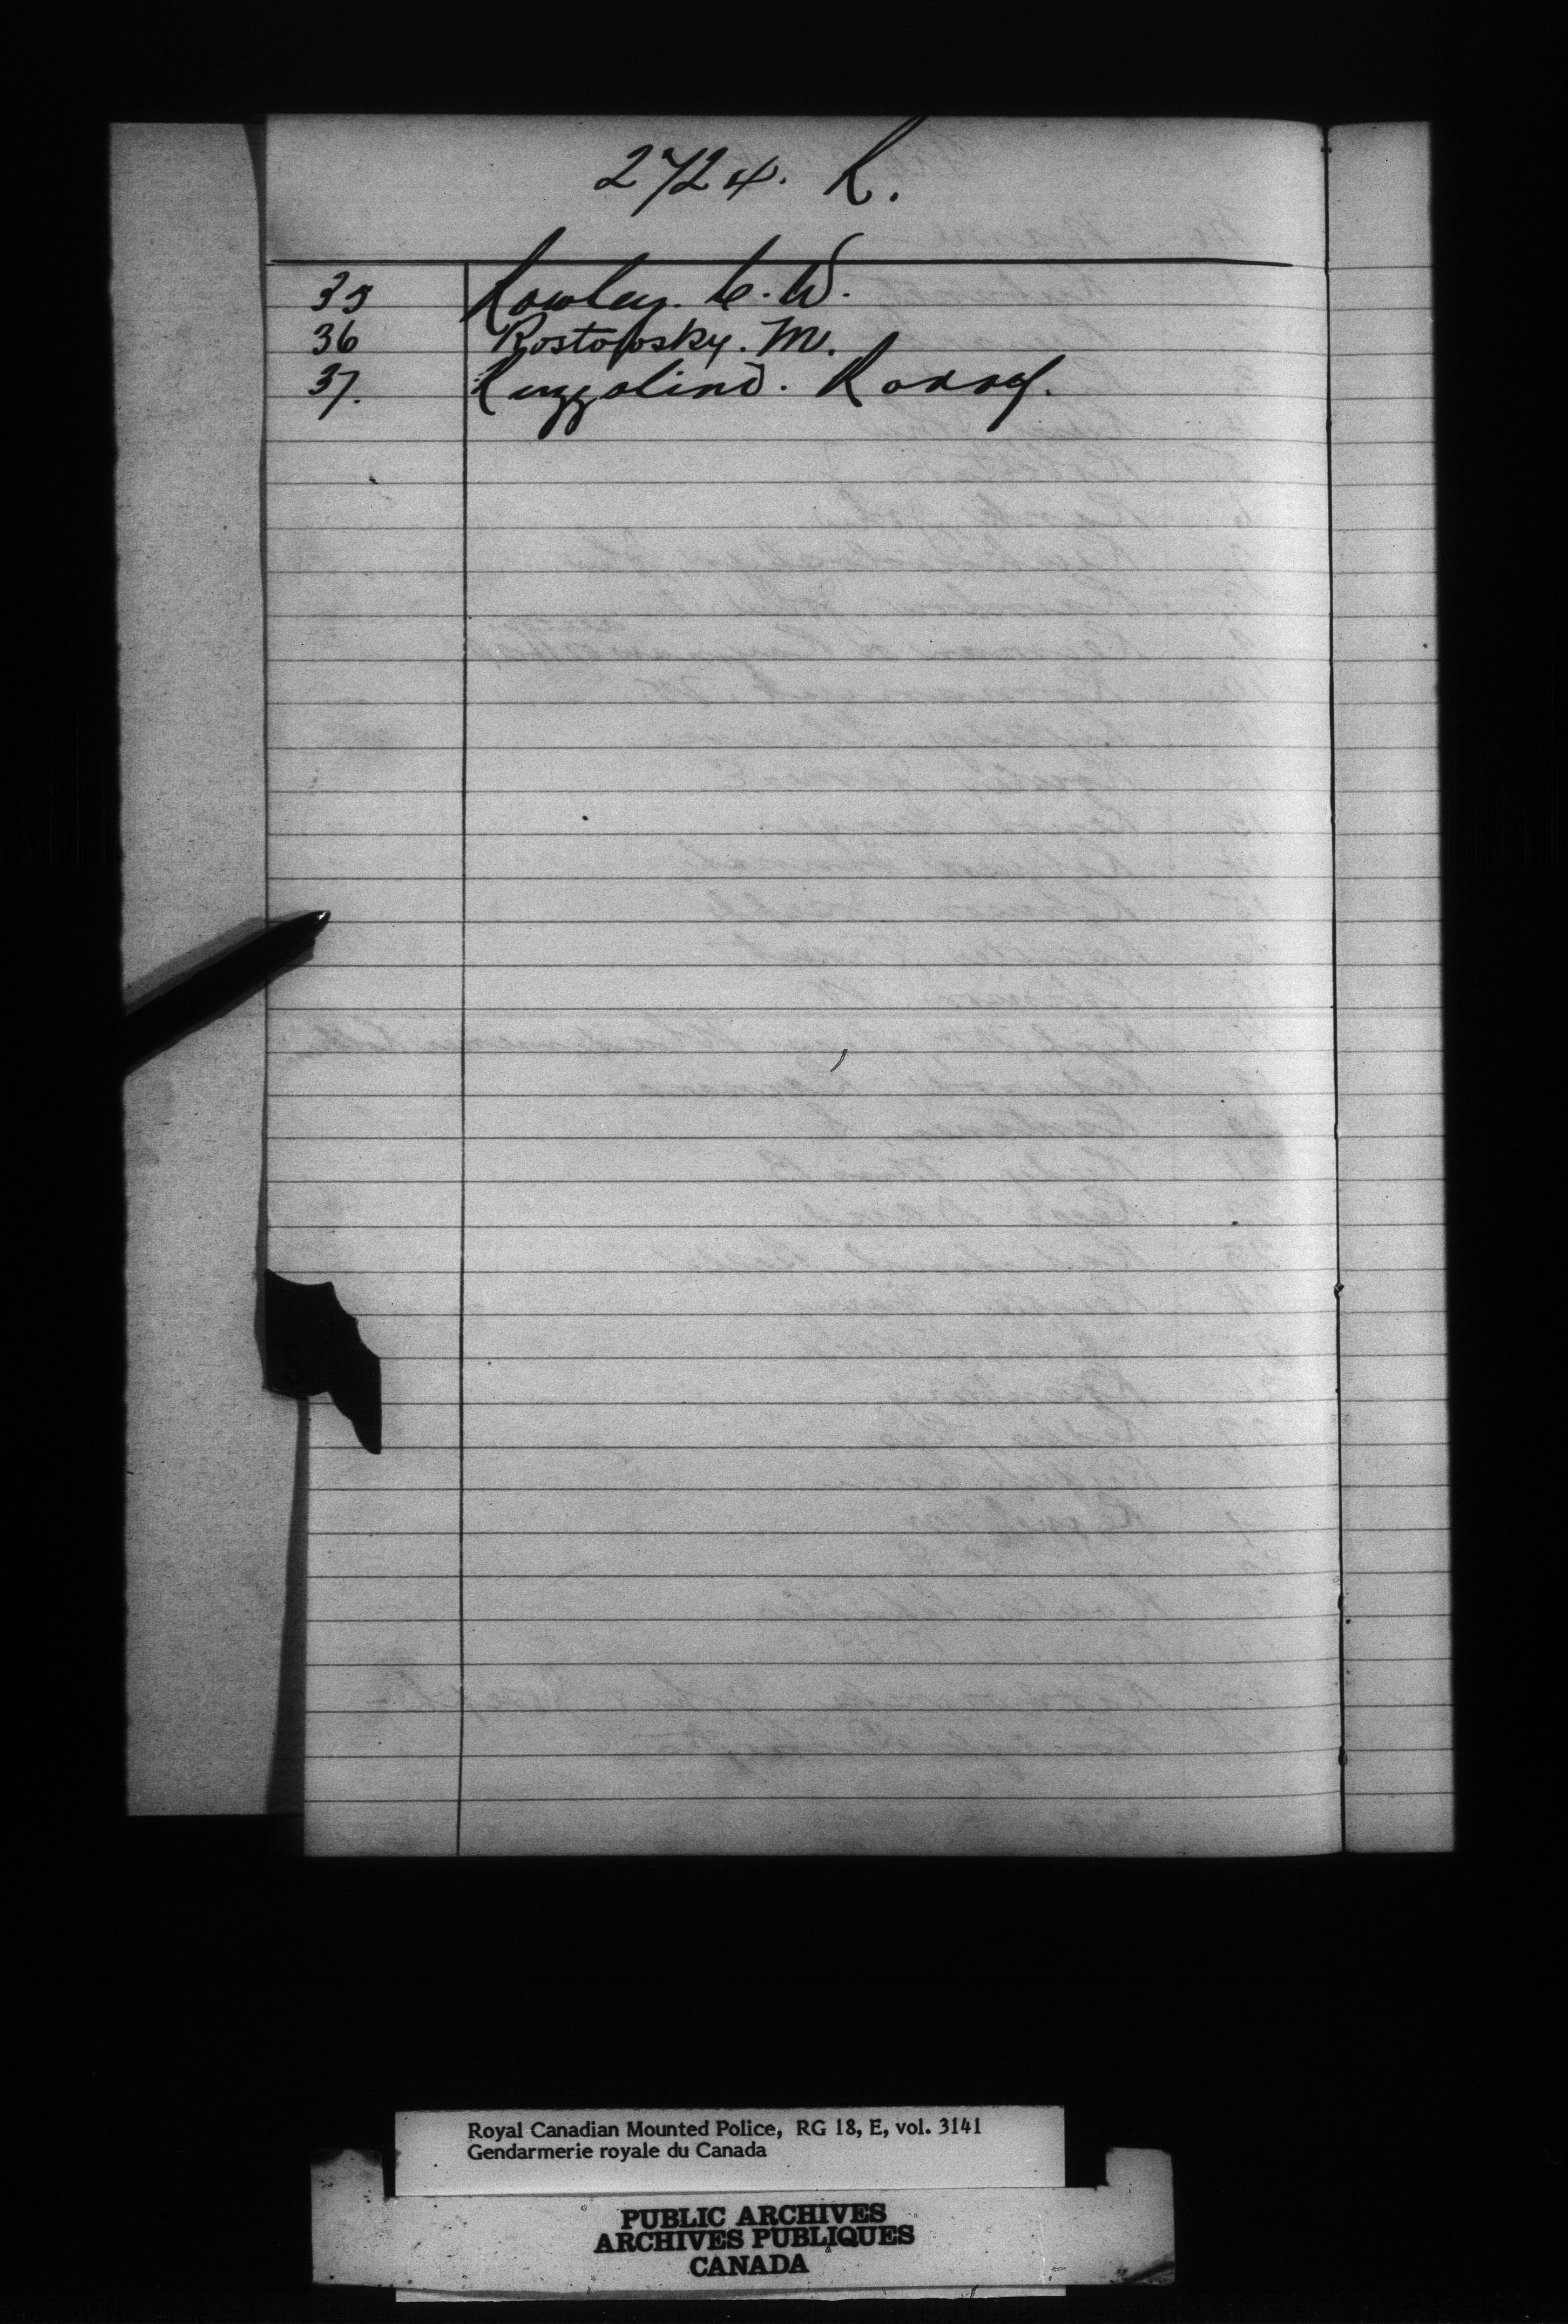 2724. R.
35 Rowley. C. W.
36 Rostofosky. M.
37. Ruzzolino.
Royal Canadian Mounted Police, RG 18, E, vol. 3141
Gendarmerie royale du Canada
PUBLIC ARCHIVES
ARCHIVES PUBLIQUES
CANADA